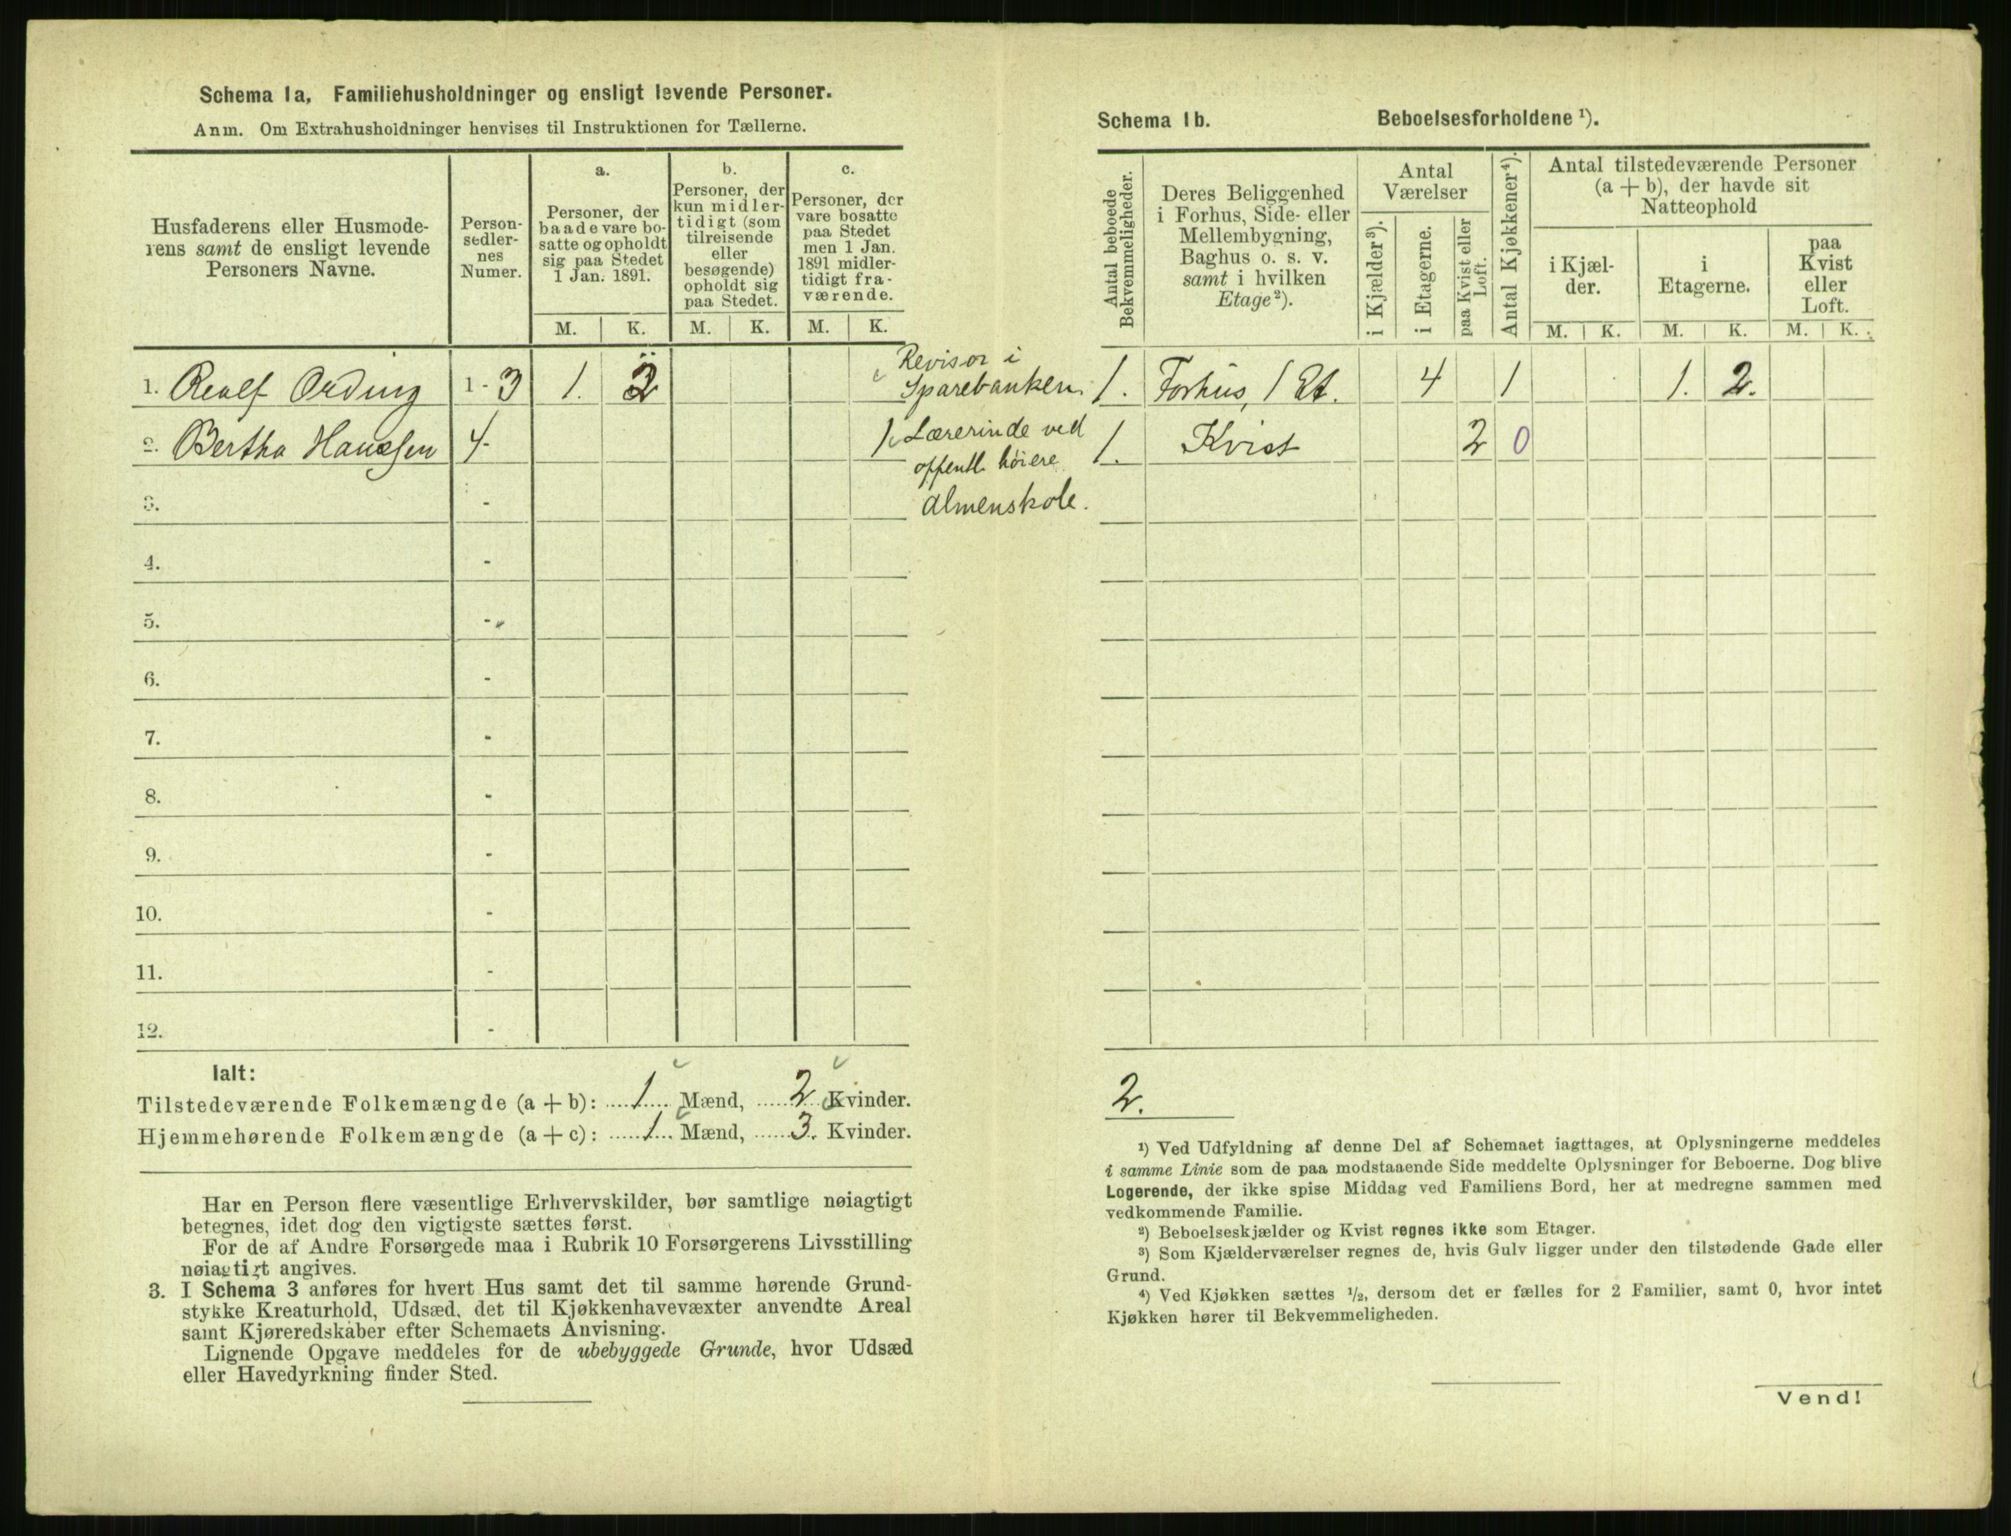 Schema 1a, Familiehusholdninger og ensligt levende Personer.
Anm. Om Extrahusholdninger henvises til Instruktionen for Tællerne.
Husfaderens eller Husmode-
rens samt de ensligt levende
Personers Navne.
Person-
sedler-
nes
Numer.
a.
Personer, der
baade vare bo-
satte og opholdt
sig paa Stedet
1 Jan. 1891.
b.
Personer, der
kun midler-
tidigt (som
tilreisende
eller
besøgende)
opholdt sig
paa Stedet.
c.
Personer, der
vare bosatte
paa Stedet
men 1 Jan.
1891 midler-
tidigt fra-
værende.
M. K. M. K. M. K.
1. Realf Ording 1 - 3 1. 2 Revisor i
Sparebanken.
2. Bertha Hanssen 4 - 1 Lærerinde ved
offentl. høiere
Almenskole.
3. -
4. -
5. -
6. -
7. -
8. -
9. -
10. -
11. -
12. -
Ialt:
Tilstedeværende Folkemængde (a + b): 1 Mænd, 2 Kvinder.
Hjemmehørende Folkemængde (a + c): 1 Mænd, 3. Kvinder.
Har en Person flere væsentlige Erhvervskilder, bør samtlige nøiagtigt
betegnes, idet dog den vigtigste sættes først.
For de af Andre Forsørgede maa i Rubrik 10 Forsørgerens Livsstilling
nøiagtigt angives.
3. I Schema 3 anføres for hvert Hus samt det til samme hørende Grund-
stykke Kreaturhold, Udsæd, det til Kjøkkenhavevæxter anvendte Areal
samt Kjøreredskaber efter Schemaets Anvisning.
Lignende Opgave meddeles for de ubebyggede Grunde, hvor Udsæd
eller Havedyrkning finder Sted.
Schema 1b. Beboelsesforholdene ¹).
Antal beboede
Bekvemmeligheder.
Deres Beliggenhed
i Forhus, Side- eller
Mellembygning,
Baghus o. s. v.
samt i hvilken
Etage ²).
Antal
Værelser
i Kjælder ³).
i Etagerne.
paa Kvist eller
Loft.
Antal Kjøkkener ⁴).
Antal tilstedeværende Personer
(a + b), der havde sit
Natteophold
i Kjæl-
der.
i
Etagerne.
paa
Kvist
eller
Loft.
M. K. M. K. M. K.
1. Forhus, 1 Et. 4 1 1. 2.
1. Kvist 2 0
2.
¹) Ved Udfyldning af denne Del af Schemaet iagttages, at Oplysningerne meddeles
i samme Linie som de paa modstaaende Side meddelte Oplysninger for Beboerne. Dog blive
Logerende, der ikke spise Middag ved Familiens Bord, her at medregne sammen med
vedkommende Familie.
²) Beboelseskjælder og Kvist regnes ikke som Etager.
³) Som Kjælderværelser regnes de, hvis Gulv ligger under den tilstødende Gade eller
Grund.
⁴) Ved Kjøkken sættes ½, dersom det er fælles for 2 Familier, samt 0, hvor intet
Kjøkken hører til Bekvemmeligheden.
Vend!